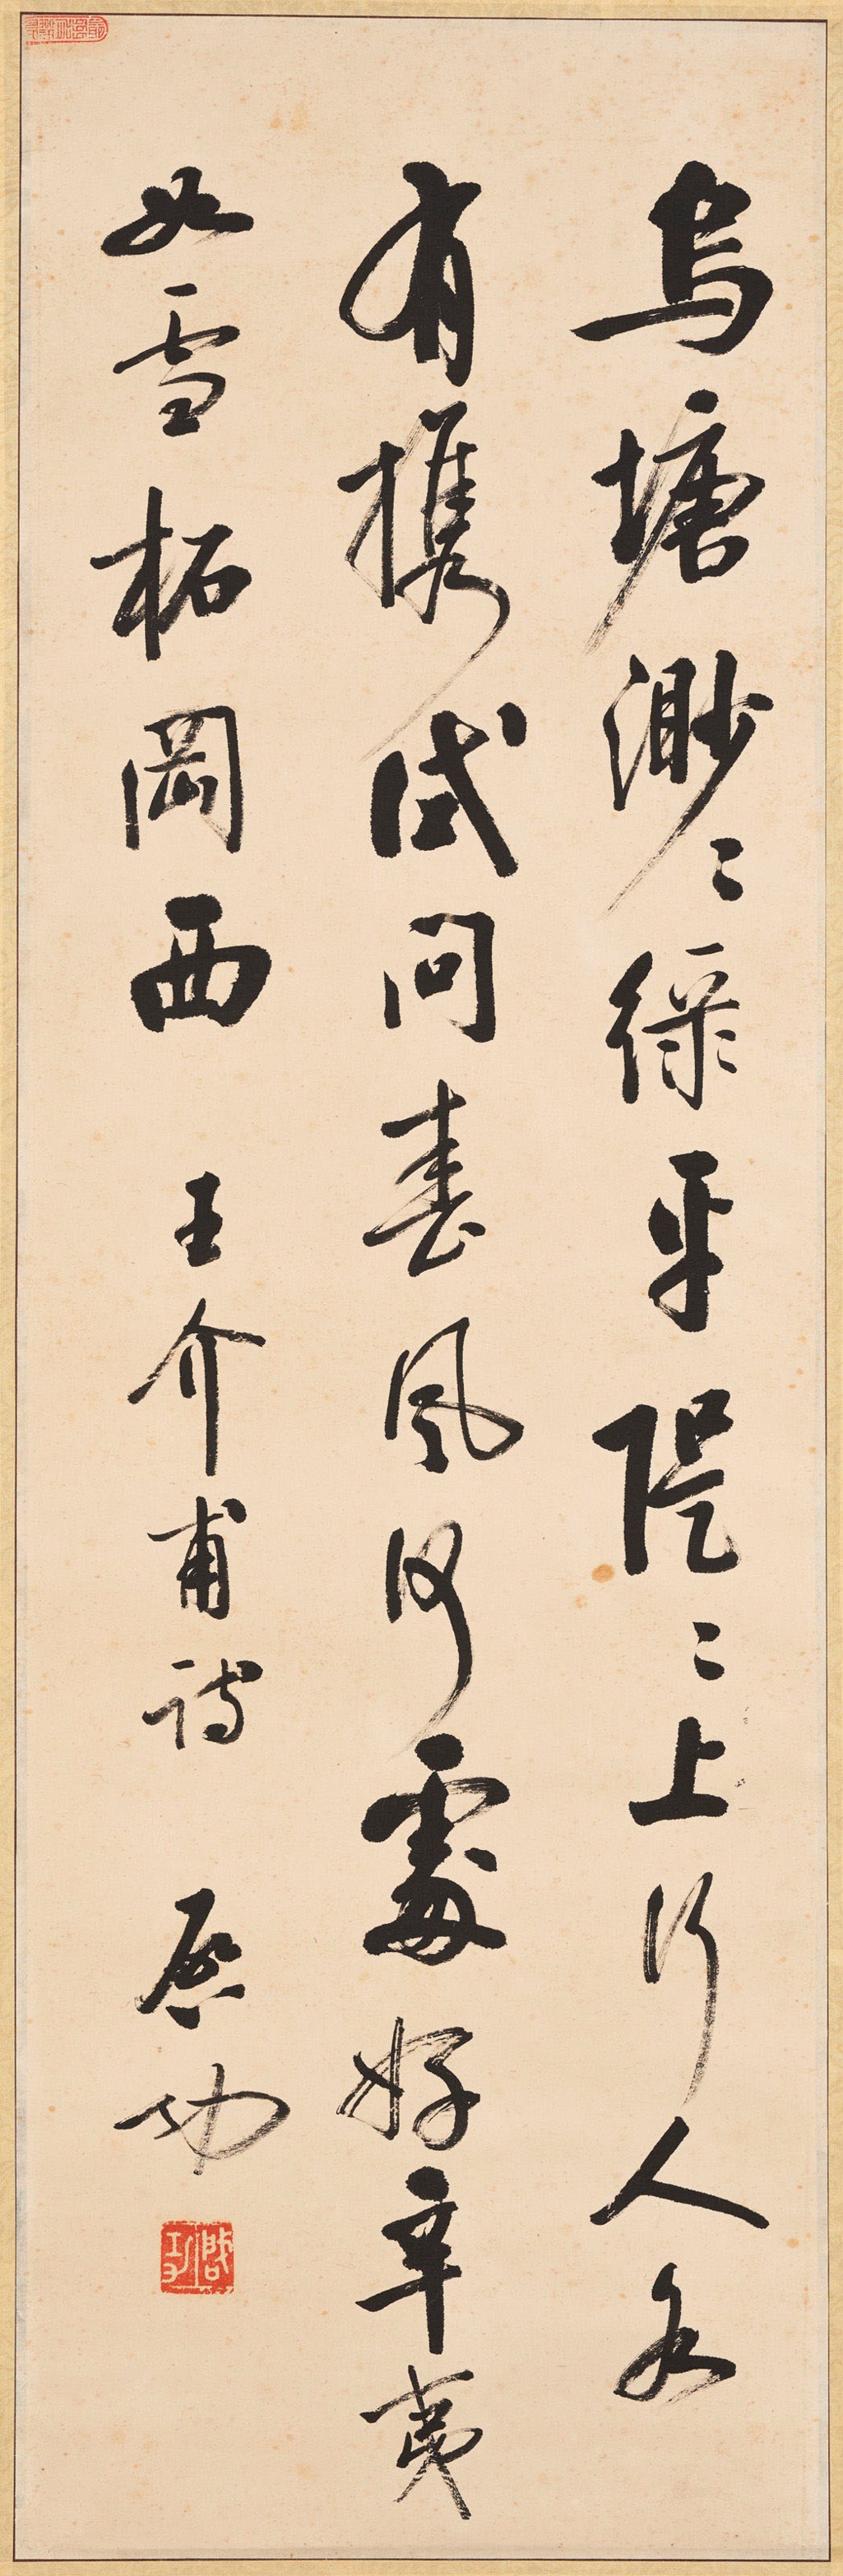 烏塘渺〻綠平隄〻上行人各
有攜試問春風何處好辛夷
如雪柘岡西 王介甫詩 啟功
啟功